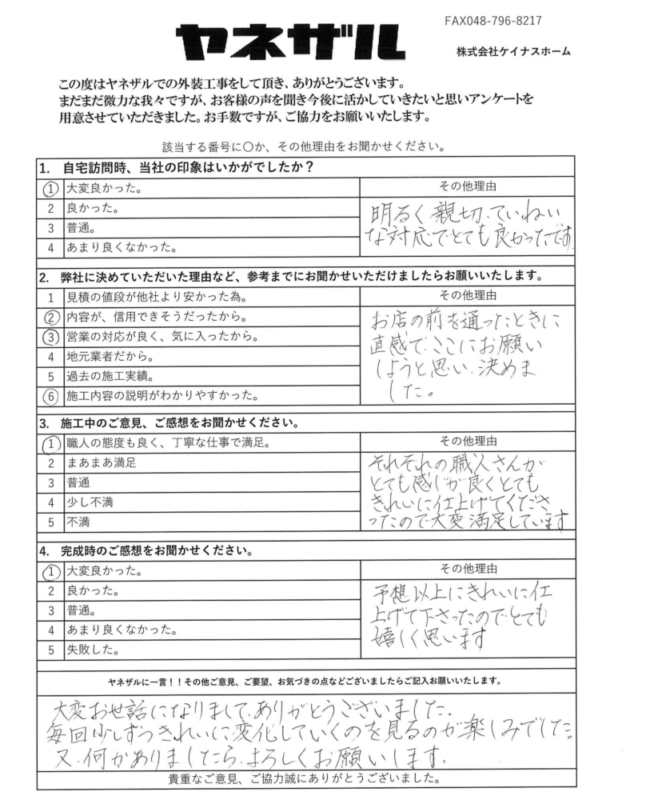 FAX048-796-8217
ヤネザル
株式会社ケイナスホーム
この度はヤネザルでの外装工事をして頂き、ありがとうございます。
まだまだ微力な我々ですが、お客様の声を聞き今後に活かしていきたいと思いアンケートを
用意させていただきました。お手数ですが、ご協力をお願いいたします。
該当する番号に〇か、その他理由をお聞かせください。
1. 自宅訪問時、当社の印象はいかがでしたか？
① 大変良かった。
その他理由
2 良かった。
3 普通。
4 あまり良くなかった。
明るく親切、ていねい
な対応でとても良かったです
2. 弊社に決めていただいた理由など、参考までにお聞かせいただけましたらお願いいたします。
1 見積の値段が他社より安かった為。
その他理由
② 内容が、信用できそうだったから。
③ 営業の対応が良く、気に入ったから。
4 地元業者だから。
5 過去の施工実績。
⑥ 施工内容の説明がわかりやすかった。
お店の前を通ったときに
直感で、ここにお願い
しようと思い、決めま
した。
3. 施工中のご意見、ご感想をお聞かせください。
① 職人の態度も良く、丁寧な仕事で満足。
その他理由
2 まあまあ満足
3 普通
4 少し不満
5 不満
それぞれの職人さんが
とても感じが良くとても
きれいに仕上げてくださ
ったので大変満足しています
4. 完成時のご感想をお聞かせください。
① 大変良かった。
その他理由
2 良かった。
3 普通。
4 あまり良くなかった。
5 失敗した。
予想以上にきれいに仕
上げて下さったので、とても
嬉しく思います
ヤネザルに一言！！その他ご意見、ご要望、お気づきの点などございましたらご記入お願いいたします。
大変お世話になりまして、ありがとうございました。
毎回少しずつきれいに変化していくのを見るのが楽しみでした。
又、何かありましたら、よろしくお願いします。
貴重なご意見、ご協力誠にありがとうございました。